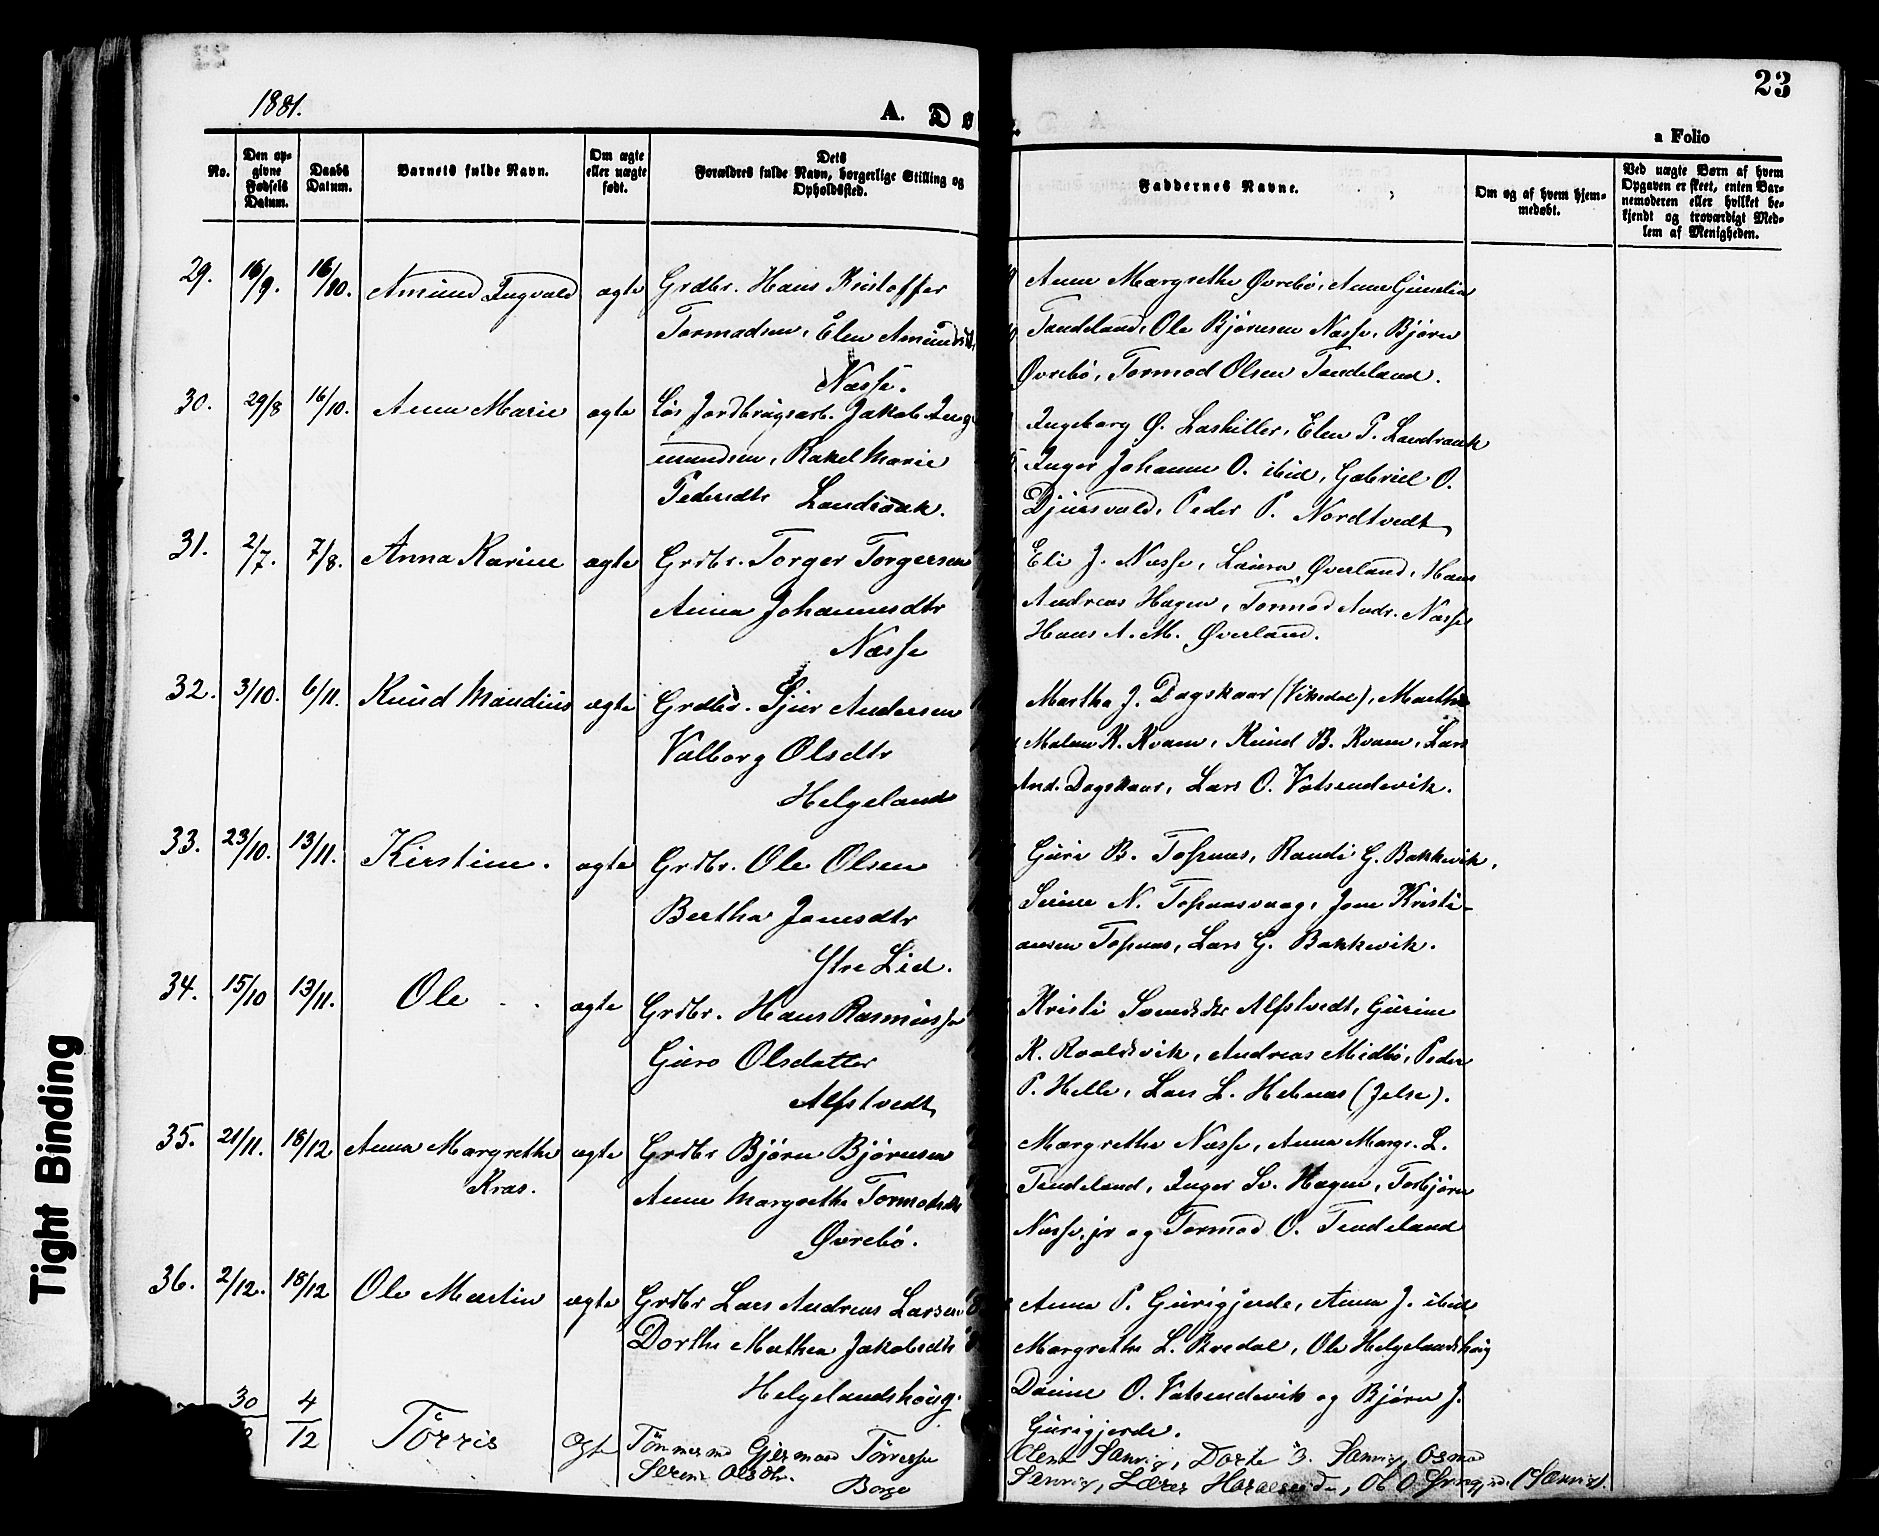 23
1881.
A. Dø
a Folio
No.
Den opgivne Fødsels Datum.
Daabs Datum.
Barnets fulde Navn.
Om ægte eller uægte født.
Dets Forældres fulde Navn, borgerlige Stilling og Opholdssted.
Faddernes Navne.
Om og af hvem hjemmedøbt.
Ved uægte Børn af hvem Opgaven er skeet, enten Barnemoderen eller hvilket bekjendt og troværdigt Medlem af Menigheden.
29. 16/9. 16/10. Amund Ingvald ægte Grdbr. Hans Kristoffer
Tormodsen, Elen Amundsdtr
Næsse.
Anne Margrethe Øvrebö, Anne Gurolia
Tendeland, Ole Bjørnsen Næsse, Bjørn
Øvrebö, Tormod Olsen Tendeland.
30. 29/8 16/10. Anna Marie ægte Løs Jordbrugsarb. Jakob Ing
mundsen, Rakel Marie
Pedersdtr Landraak.
Ingeborg Ø. Laskiller, Elen P. Landraak
Inger Johanne O. ibid, Gabriel O.
Djursvold, Peder P. Nordtvedt
31. 2/7. 7/8. Anna Karine ægte Grdbr. Torger Torgersen
Anna Johannesdtr
Næsse
Eli J. Næsse, Laura Øverland, Hans
Andreas Hagen, Tormod Andr. Næsse
Hans A. M. Øverland.
32. 3/10. 6/11. Knud Mandius ægte Grdbr. Sjur Andersen
Valborg Olsdtr
Helgeland
Martha J. Dagskaar (Vikedal), Marthe
Malene K. Kvam, Knud B. Kvam, Lars
And. Dagskaar, Lars O. Vatsendevik.
33. 23/10. 13/11. Kirstine. ægte Grdbr. Ole Olsen
Bertha Jonesdtr
Ytre Lid.
Guri B. Toskas, Randi G. Bakkevik,
Serine N. Tosnasvaag, Jone Kristi-
ansen Tosnas, Lars G. Bakkevik.
34. 15/10 13/11. Ole ægte Grdbr. Hans Rasmusse
Guro Olsdatter
Alfstvedt
Kristi Svendsdtr Alfstvedt, Gurine
K. Roaldsvik, Andreas Midbö, Peder
P. Helle, Lars L. Hebnas (Jelse).
35. 21/11. 18/12 Anna Margrethe ægte Grdbr Bjørn Bjørnsen
Kras. Anne Margrethe Tormodsdtr
Øvrebö.
Margrethe Næsse, Anna Margr. L.
Tendeland, Inger Sv. Hagen, Torbjørn
Næsse, jr og Tormod O. Tendeland
36. 2/12. 18/12 Ole Martin ægte Grdbr Lars Andreas Larsen
Dorthe Mathea Jakobsdtr
Helgelandshoug.
Anna P. Gurigjerde, Anna J. ibid,
Margrethe L. Kvedal, Ole Helgelandshoug
Daniel O. Vatsendevik og Bjørn J.
Gurigjerde.
30 4/12 Tørris ægte Tönmesmd Gjermond Tönesse
Serene Olsdtr. Borge
Olene Sanvig, Dorte 3. Sanvig, Osmod
Sanvig, Lærer Haraldseide, (Sanvig).
Tight Binding